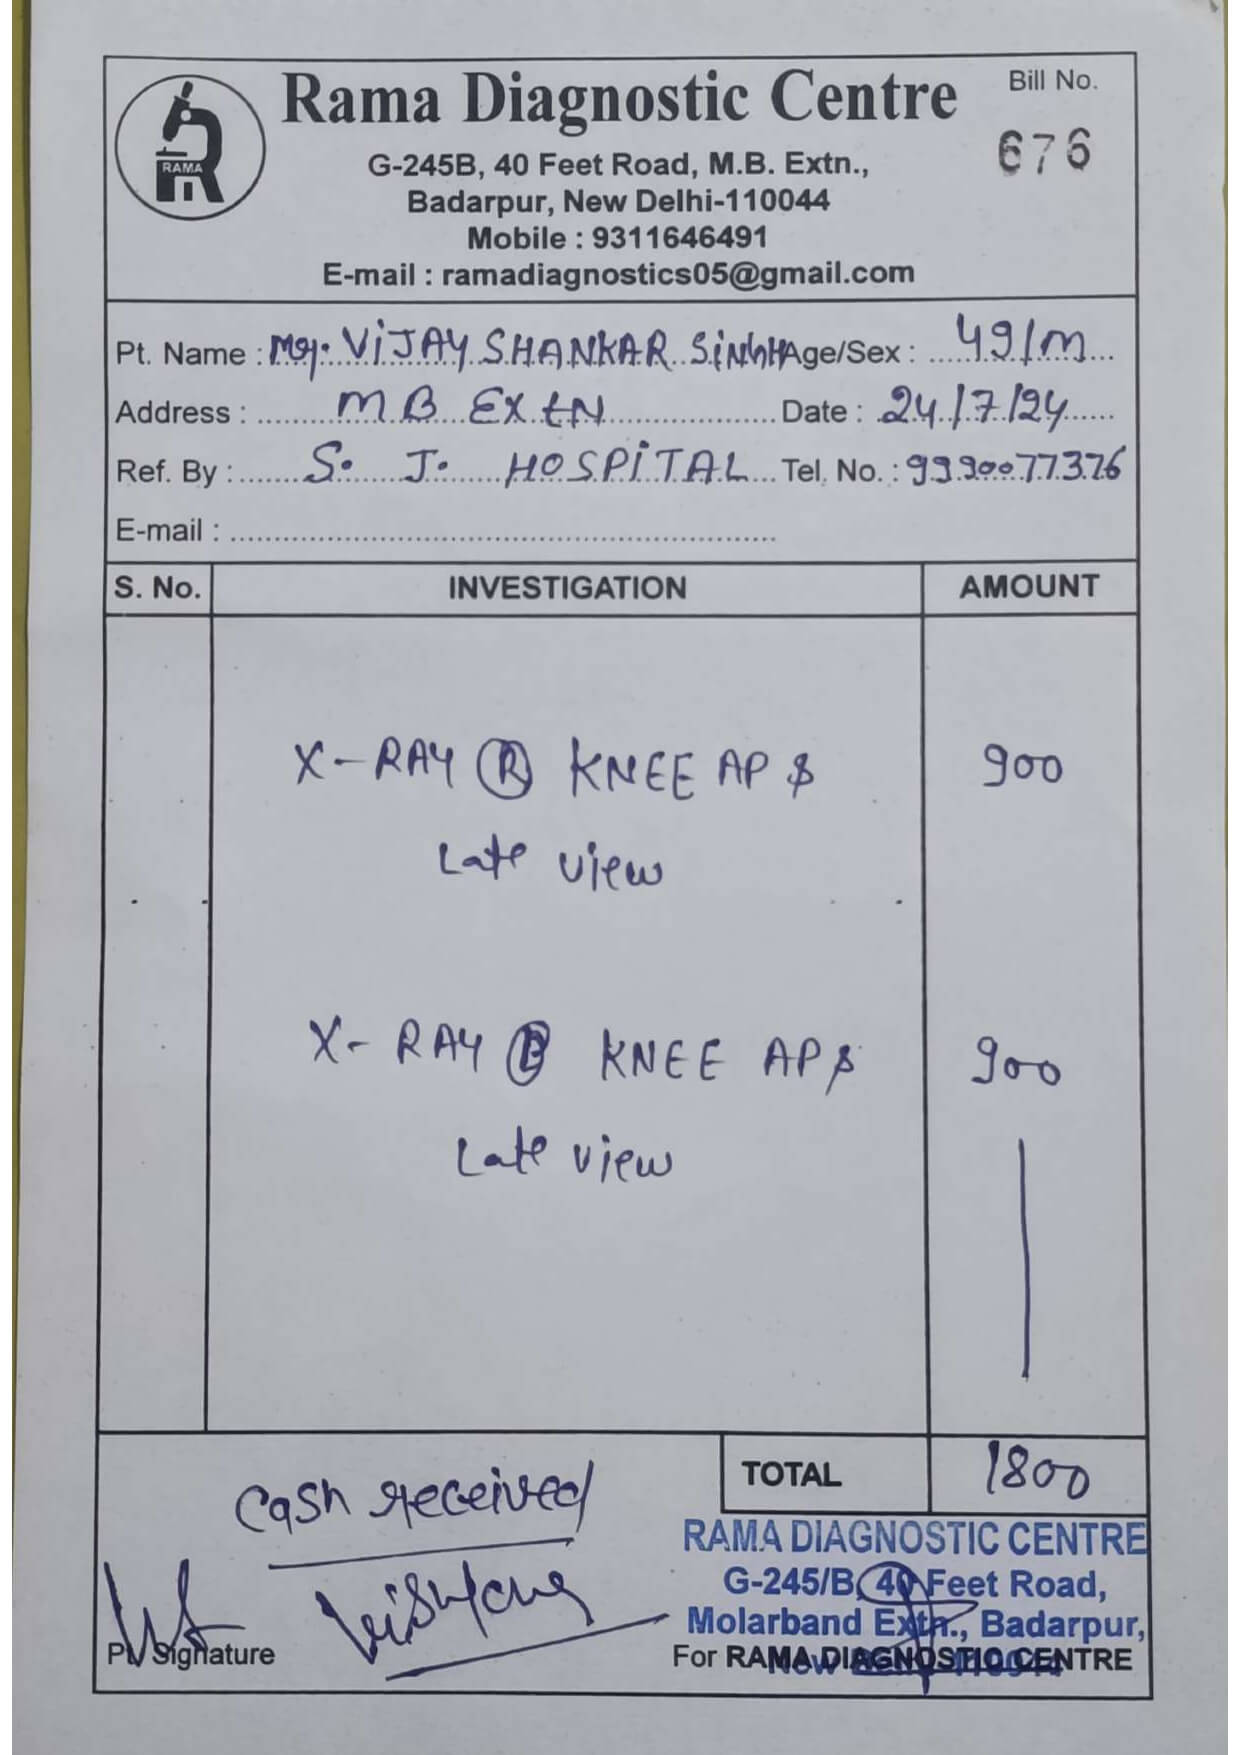 Rama Diagnostic Centre
Bill No.
676
RAMA
G-245B, 40 Feet Road, M.B. Extn.,
Badarpur, New Delhi-110044
Mobile : 9311646491
E-mail : ramadiagnostics05@gmail.com
Pt. Name : VIJAY SHANKAR SINGH Age/Sex : 49/m
Address : MB EXtN Date : 24/7/24
Ref. By : S. J. HOSPITAL Tel. No. :
E-mail :
S. No. INVESTIGATION AMOUNT
X-RAY Ⓡ KNEE AP & 900
Late view
X-RAY KNEE AP & 900
Late view
TOTAL 1800
Cash received
RAMA DIAGNOSTIC CENTRE
G-245/B, 40 Feet Road,
Molarband Extn., Badarpur,
Pt. Signature
For RAMA DIAGNOSTIC CENTRE